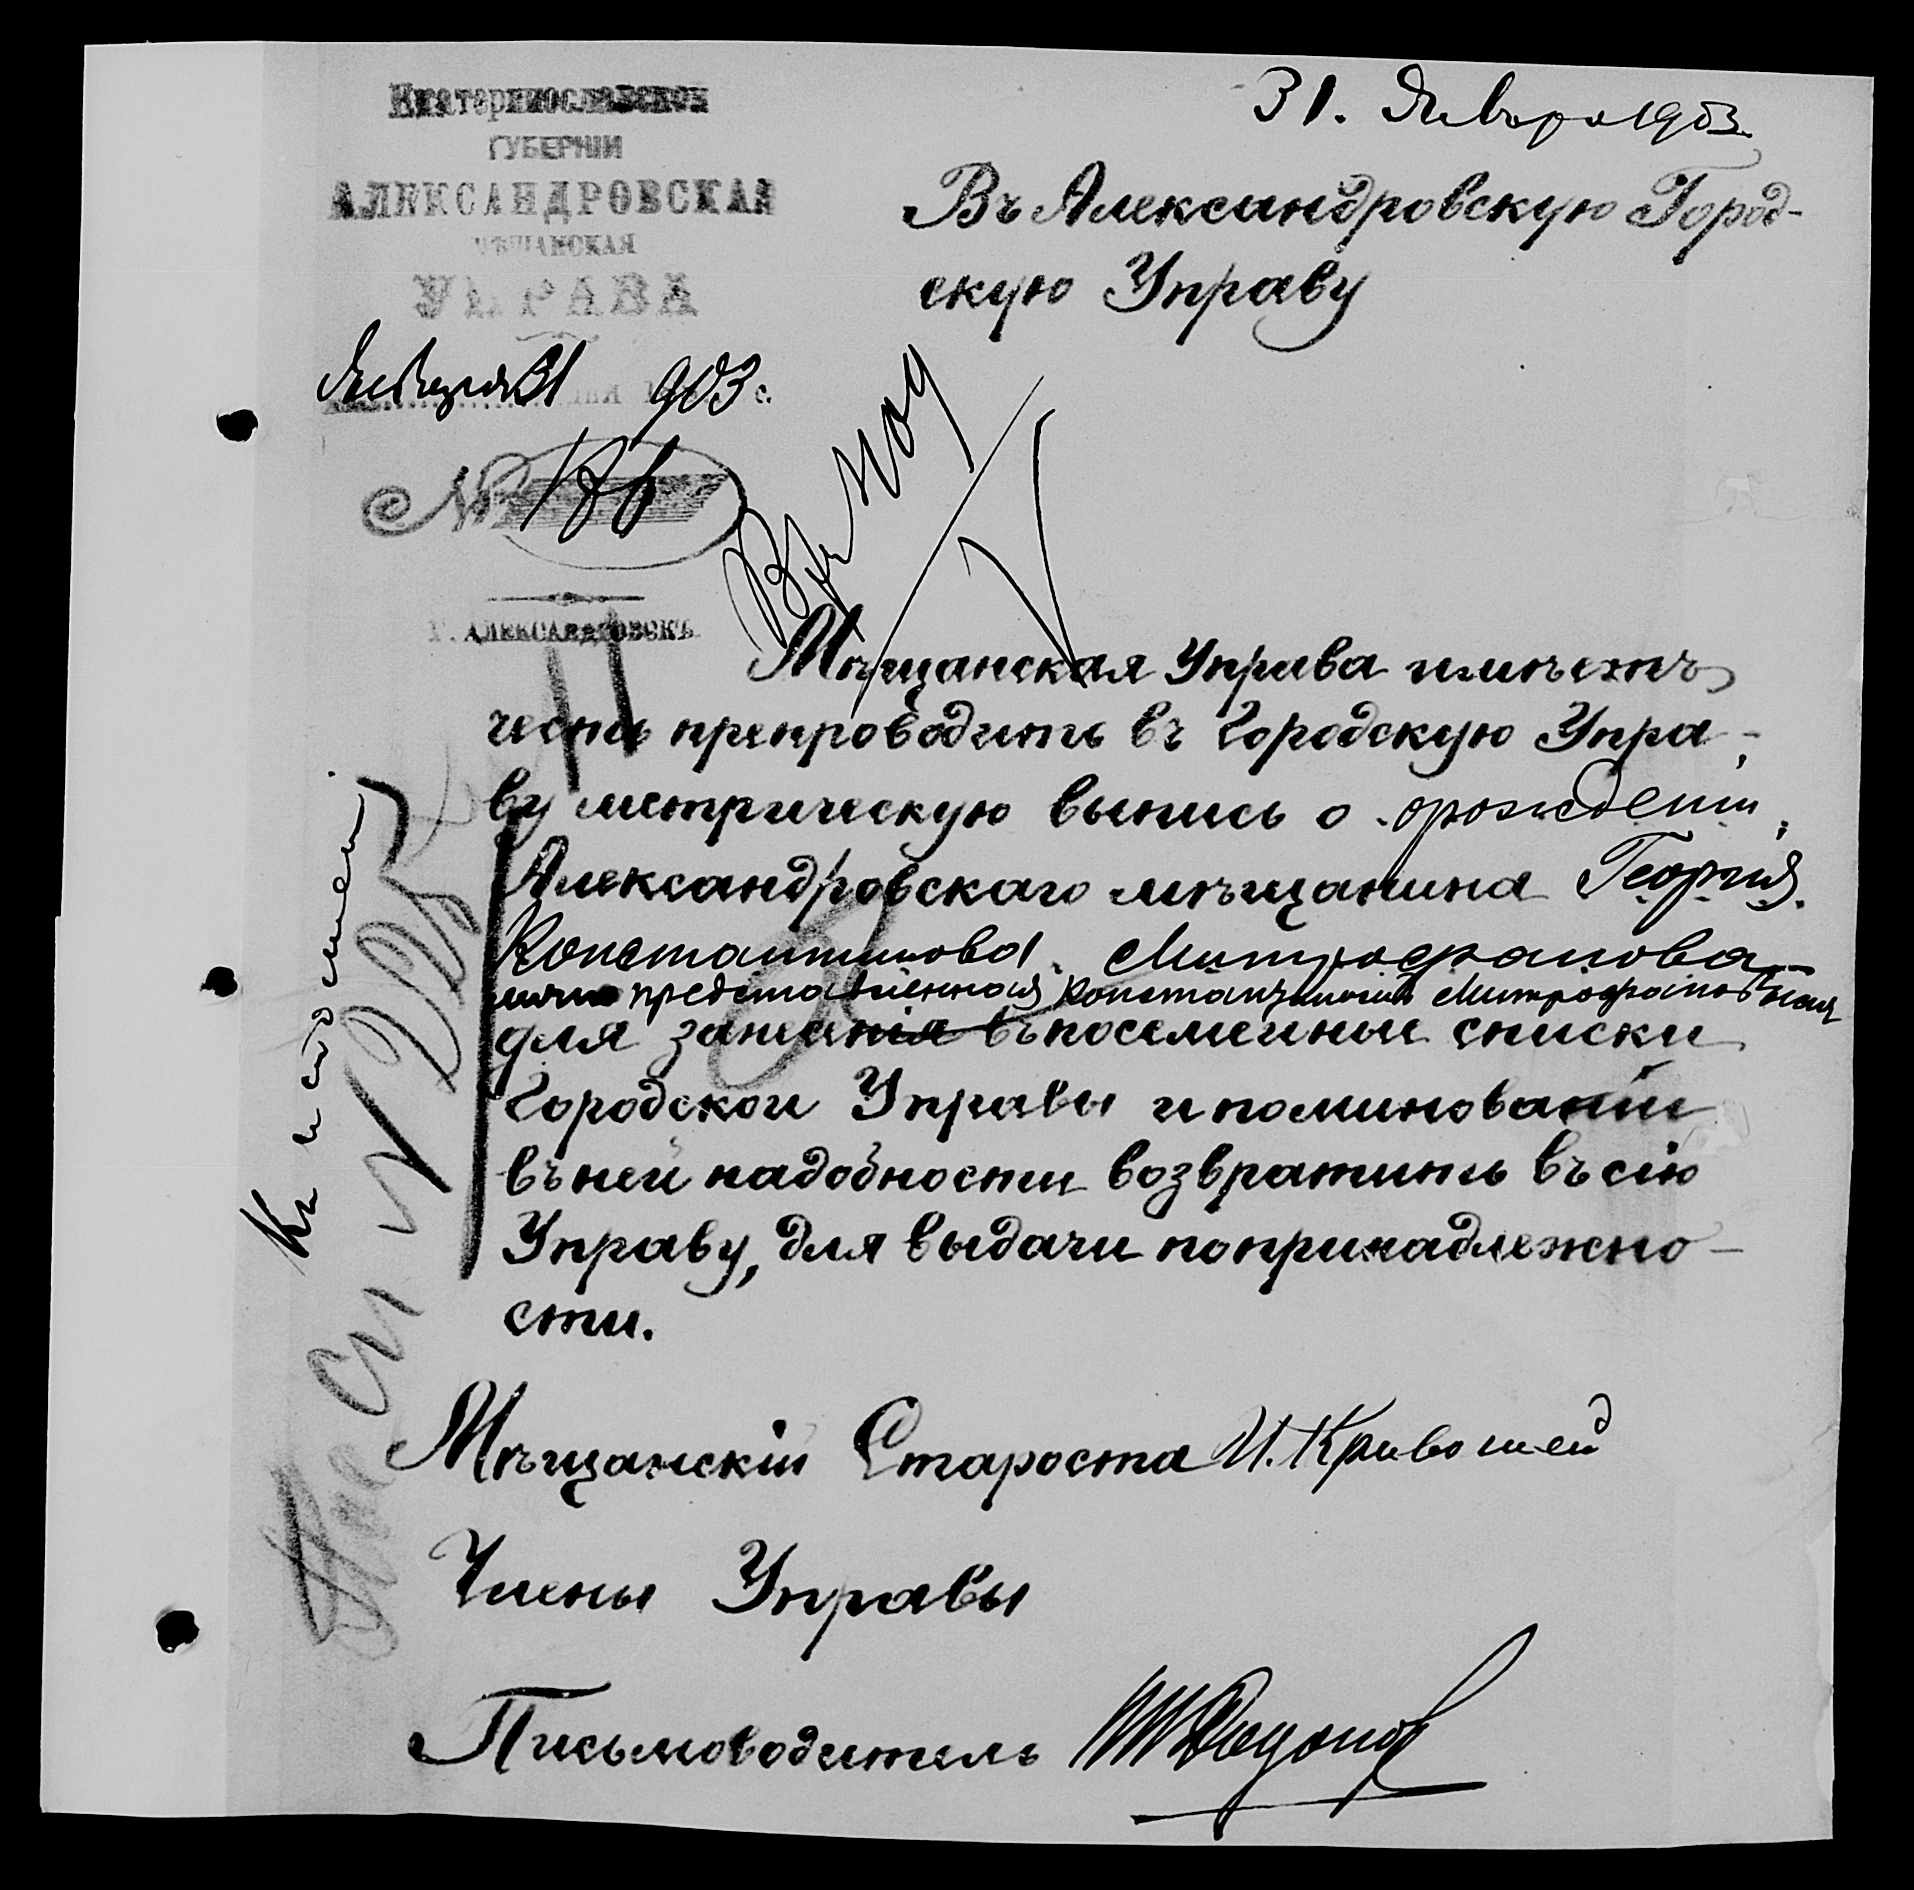 Екатеринославской
ГУБЕРНІИ
АЛЕКСАНДРОВСКАЯ
МѢЩАНСКАЯ
УПРАВА
Января 31 903 г.
№ 186
Г. АЛЕКСАНДРОВСКЪ
31. Января 1903.
Въ Александровскую Город-
скую Управу
Мѣщанская Управа имѣетъ
честь препроводить въ Городскую Упра-
ву метрическую выпись о рожденіи
Александровскаго мѣщанина Георгія
Константинова Митрофанова
представленная Константиномъ Митрофановымъ
для занесенія въ посемейные списки
Городской Управы и поминованіи
въ ней надобности возвратить въ сію
Управу, для выдачи по принадлежно-
сти.
Мѣщанскій Староста И. Кривошей
Члены Управы
Письмоводитель